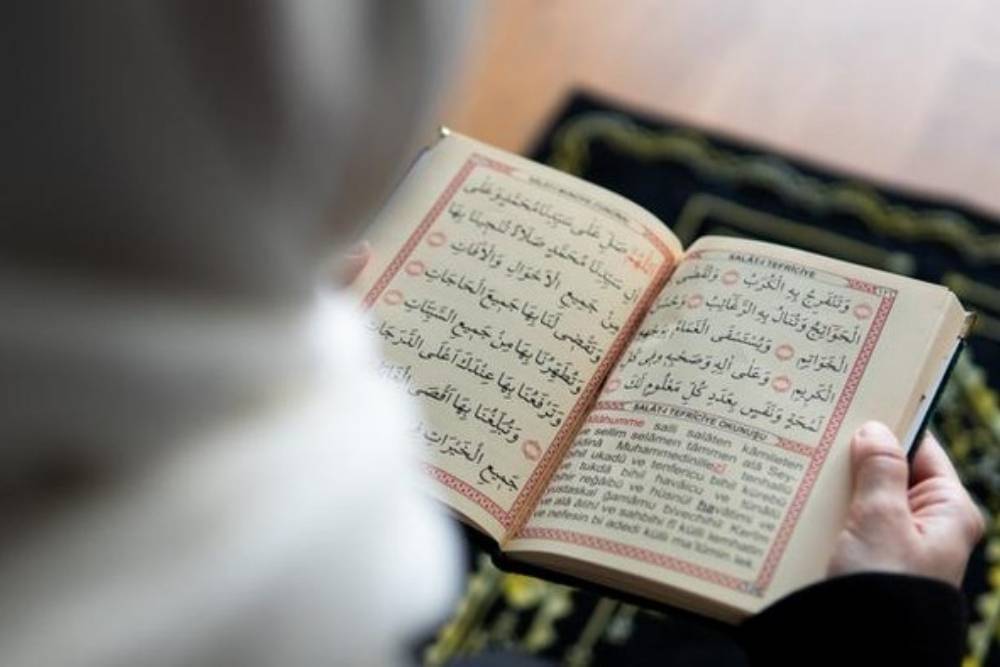 SALÂT-I TEFRİCİYE
وَتَنْفَرِجُ بِهِ الْكُرَبُ وَتُقْضٰى
الْحَوَائِجُ وَتُنَالُ بِهِ الرَّغَائِبُ وَحُسْنُ
الْخَوَاتِمِ وَيُسْتَسْقَى الْغَمَامُ بِوَجْهِهِ
الْكَرِيمِ وَعَلٰى اٰلِهِ وَصَحْبِهِ فِي كُلِّ
لَمْحَةٍ وَنَفَسٍ بِعَدَدِ كُلِّ مَعْلُومٍ لَكَ
SALÂT-I TEFRİCİYE OKUNUŞU
salli salâten kâmileten
ve sellim selâmen tâmmen alâ Sey-
Muhammedinillezî tenhallü
bihil ukadü ve tenfericu bihil kürebü
ve tukdâ bihil havâicü ve tünâlü
bihir reğâibü ve hüsnül havâtimi ve
yustaskal ğamâmu bivechihil Kerîm
ve alâ âlihî ve sahbihî fî külli lemhatin
ve nefesin bi adedi külli ma'lûmin lek.
صَلِّ عَلٰى سَيِّدِنَا مُحَمَّدٍ وَعَلٰى
سَيِّدِنَا مُحَمَّدٍ صَلَاةً تُنْجِينَا بِهَا
مِنْ جَمِيعِ الْاَهْوَالِ وَالْاٰفَاتِ
وَتَقْضٰى لَنَا بِهَا جَمِيعَ الْحَاجَاتِ
وَتُطَهِّرُنَا بِهَا مِنْ جَمِيعِ السَّيِّئَاتِ
وَتَرْفَعُنَا بِهَا عِنْدَكَ اَعْلَى الدَّرَجَاتِ
وَتُبَلِّغُنَا بِهَا اَقْصَى
جَمِيعِ الْخَيْرَاتِ